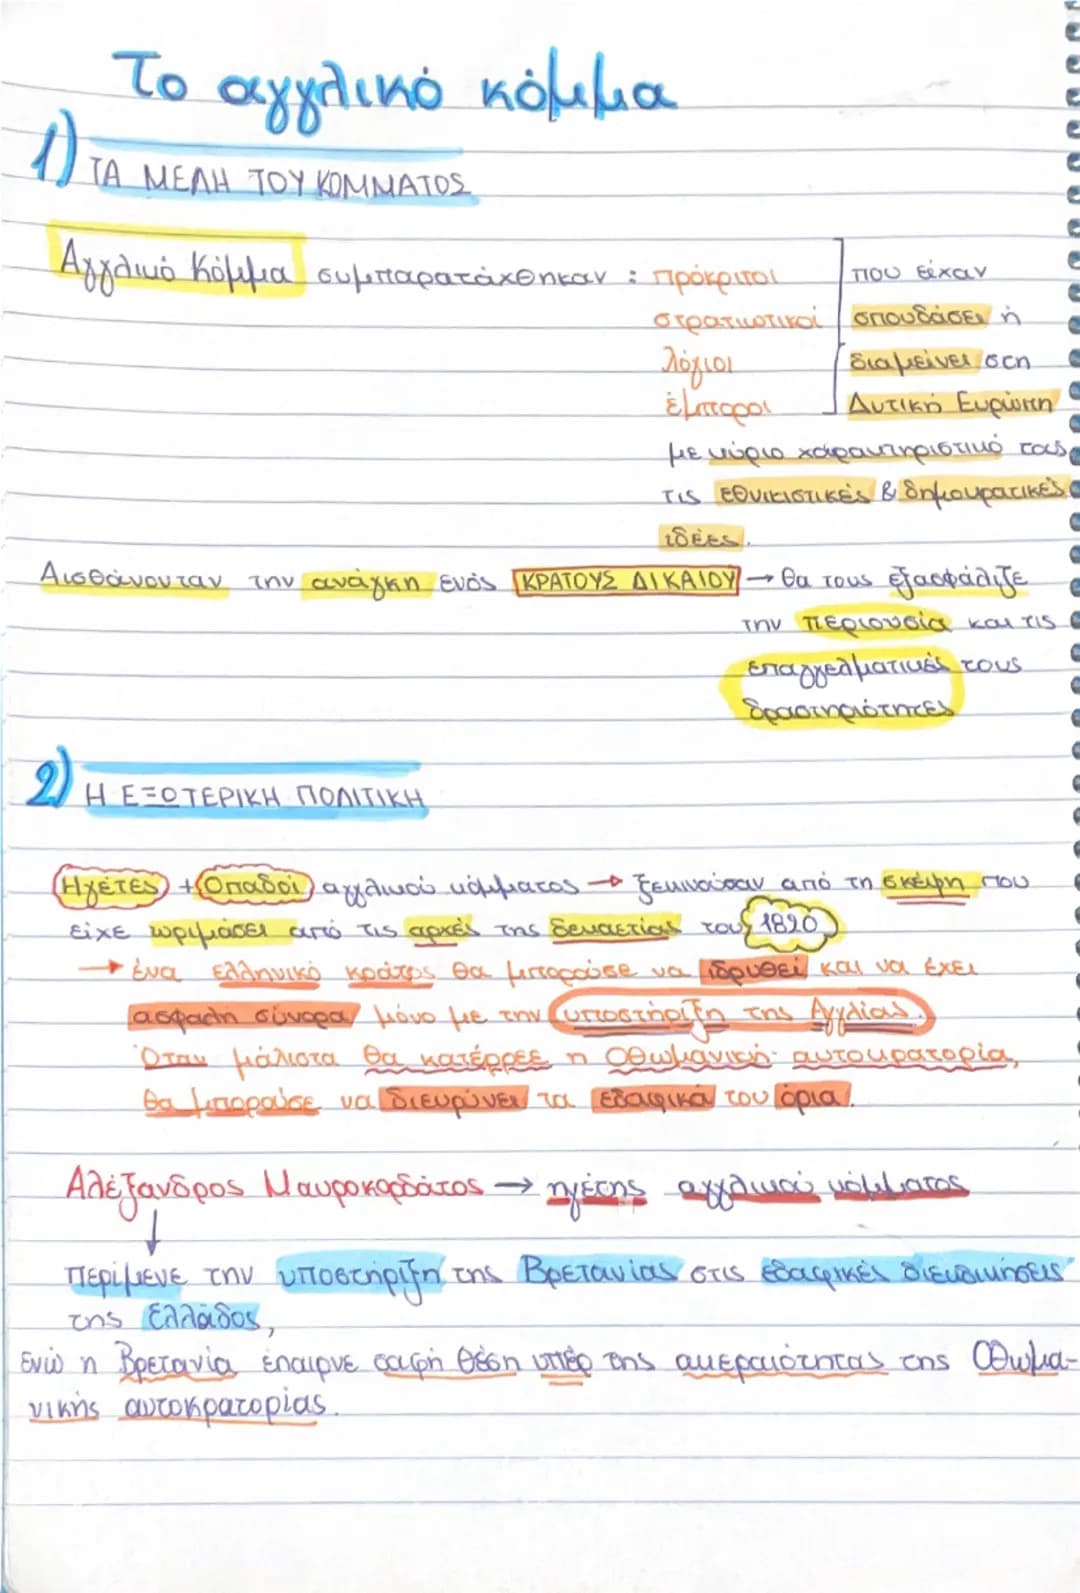 Το αγγλικό κόμμα
1) ΤΑ ΜΕΛΗ ΤΟΥ ΚΟΜΜΑΤΟΣ
Αγγλικό Κόμμα συμπαρατάχθηκαν : πρόκριτοι που είχαν
στρατιωτικοί σπουδάσει ή
λόγιοι διαμείνει στη
έμποροι Δυτική Ευρώπη
με κύριο χαρακτηριστικό τους
τις εθνικιστικές & δημοκρατικές
ιδέες.
Αισθάνονταν την ανάγκη ενός ΚΡΑΤΟΥΣ ΔΙΚΑΙΟΥ → θα τους εξασφάλιζε
την περιουσία και τις
επαγγελματικές τους
δραστηριότητες
2) Η ΕΞΩΤΕΡΙΚΗ ΠΟΛΙΤΙΚΗ
Ηγέτες + Οπαδοί αγγλικού κόμματος → ξεκινούσαν από τη σκέψη που
είχε ωριμάσει από τις αρχές της δεκαετίας του 1820
→ ένα ελληνικό κράτος θα μπορούσε να ιδρυθεί και να έχει
ασφαλή σύνορα μόνο με την υποστήριξη της Αγγλίας.
Όταν μάλιστα θα κατέρρεε η Οθωμανική αυτοκρατορία,
θα μπορούσε να διευρύνει τα εδαφικά του όρια.
Αλέξανδρος Μαυροκορδάτος → ηγέτης αγγλικού κόμματος
↓
Περίμενε την υποστήριξη της Βρετανίας στις εδαφικές διεκδικήσεις
της Ελλάδος,
Ενώ η Βρετανία έπαιρνε σαφή θέση υπέρ της ακεραιότητας της Οθωμα-
νικής αυτοκρατορίας.